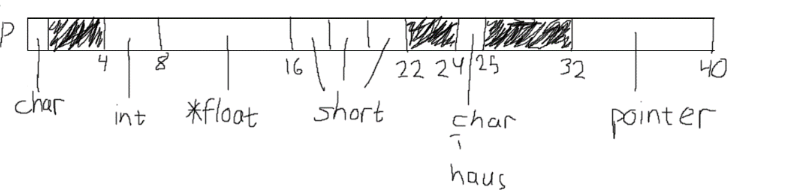 p
4 8 16 22 24 25 32 40
char int *float short char pointer
haus